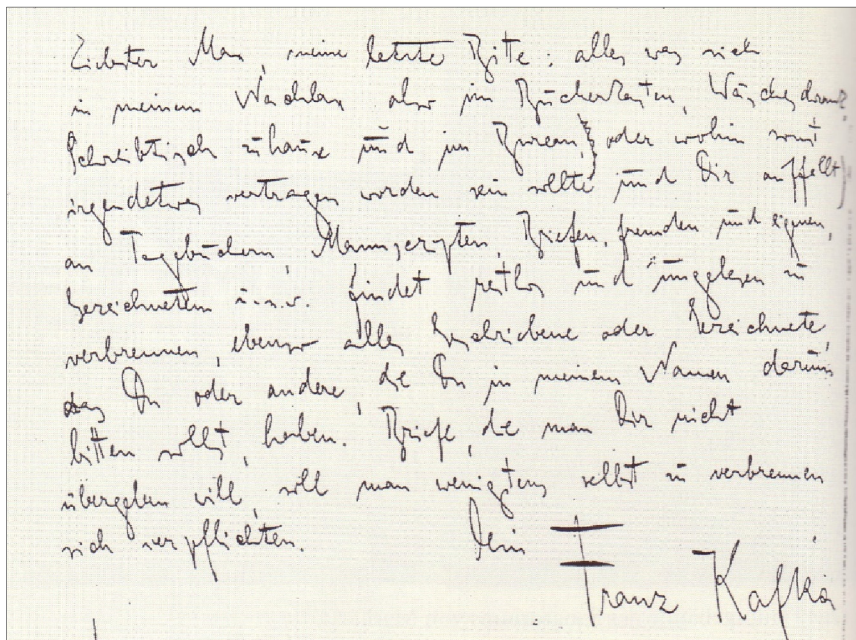 Liebster Max, meine letzte Bitte: alles was sich
in meinem Nachlass also im Bücherkasten, Wäscheschrank
Schreibtisch zuhause und im Bureau, oder wohin sonst
irgendetwas vertragen worden sein sollte und Dir auffällt)
an Tagebüchern, Manuscripten, Briefen, fremden und eigenen,
Gezeichnetem u.s.w. findet restlos und ungelesen zu
verbrennen, ebenso alles Geschriebene oder Gezeichnete,
das Du oder andere, die Du in meinem Namen darum
bitten sollst, haben. Briefe, die man Dir nicht
übergeben will, soll man wenigstens selbst zu verbrennen
sich verpflichten.
Dein
Franz Kafka